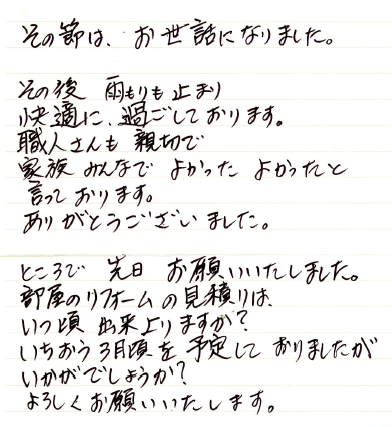 その節は、お世話になりました。
その後 雨もりも止まり
快適に、過ごしております。
職人さんも 親切で
家族 みんなで よかった よかったと
言っております。
ありがとうございました。
ところで 先日 お願いいたしました。
部屋のリフォームの見積りは、
いつ頃 出来上りますか?
いちおう 3月頃を 予定して おりましたが
いかがでしょうか?
よろしくお願いいたします。